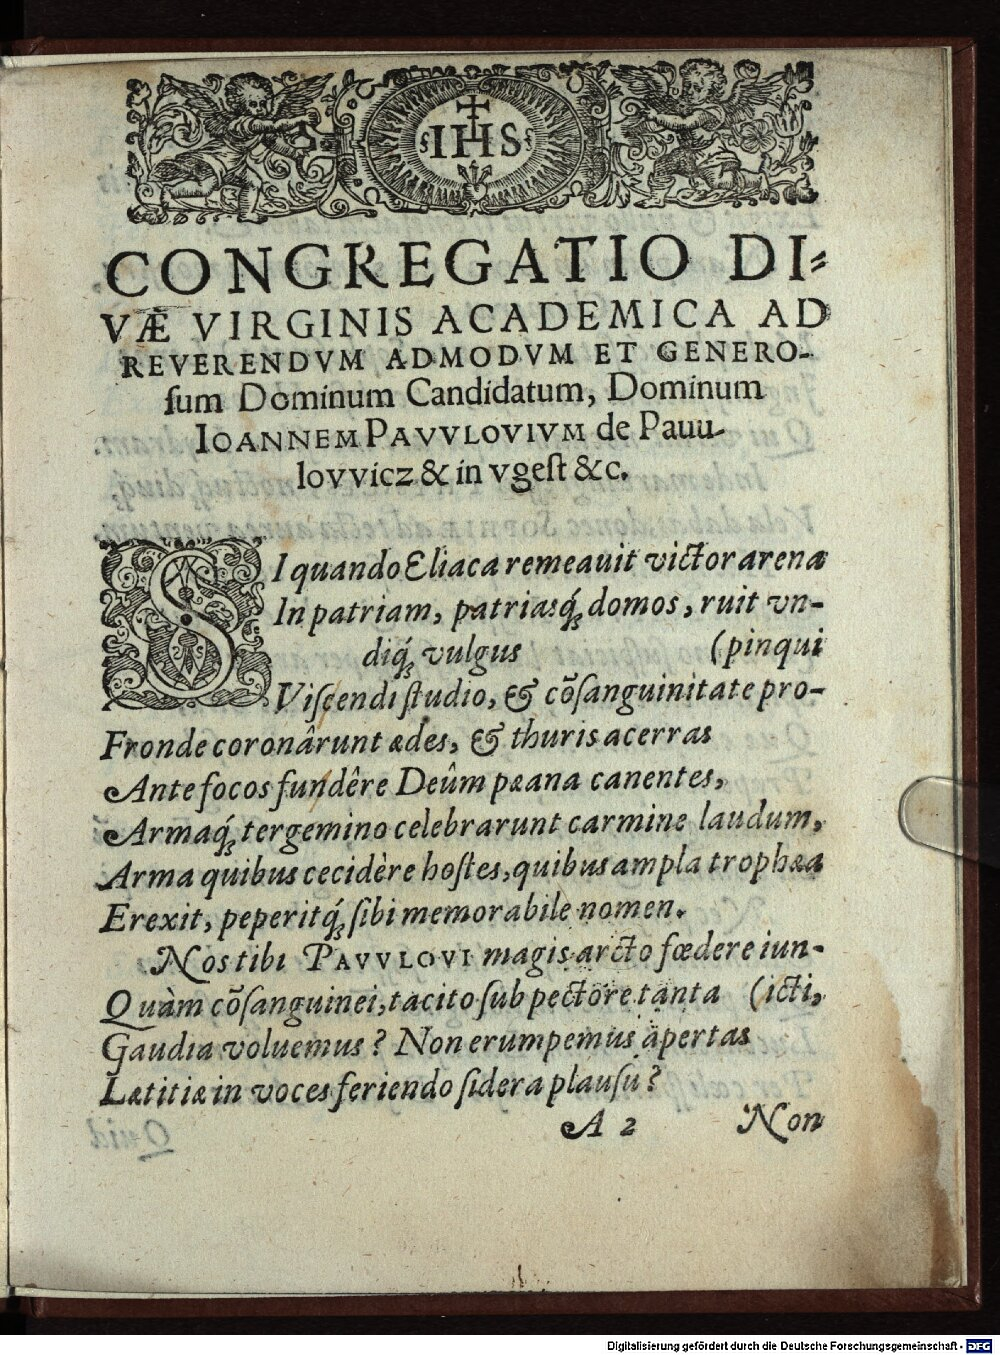 IHS
CONGREGATIO DI⸗
VÆ VIRGINIS ACADEMICA AD
REVERENDVM ADMODVM ET GENERO-
ſum Dominum Candidatum, Dominum
IOANNEM PAVVLOVIVM de Pavu-
lovvicz & in vgeſt &c.
SI quando Eliaca remeauit victor arenæ
In patriam, patriasq́; domos, ruit vn-
diq́; vulgus (pinqui
Viſcendi ſtudio, & cõſanguinitate pro-
Fronde coronârunt ædes, & thuris acerras
Ante focos fundêre Deûm pæana canentes,
Armaq́; tergemino celebrarunt carmine laudum,
Arma quibus cecidère hoſtes, quibus ampla trophæa
Erexit, peperitq́; ſibi memorabile nomen.
Nos tibi PAVVLOVI magis arcto fœdere iun-
Quàm cõſanguinei, tacito ſub pectore tanta (icti,
Gaudia voluemus? Non erumpemus apertas
Lætitiæ in voces feriendo ſidera plauſu?
A 2 Non
Digitalisierung gefördert durch die Deutsche Forschungsgemeinschaft - DFG